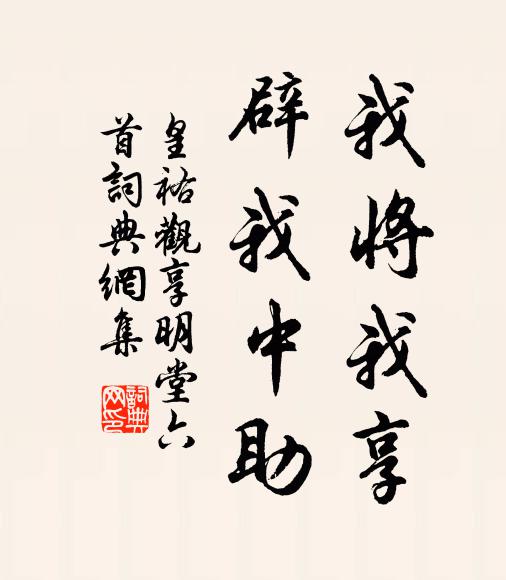 我將我享
辟我中助
皇祐觀享明堂六
首詞典網集
詞典
网印